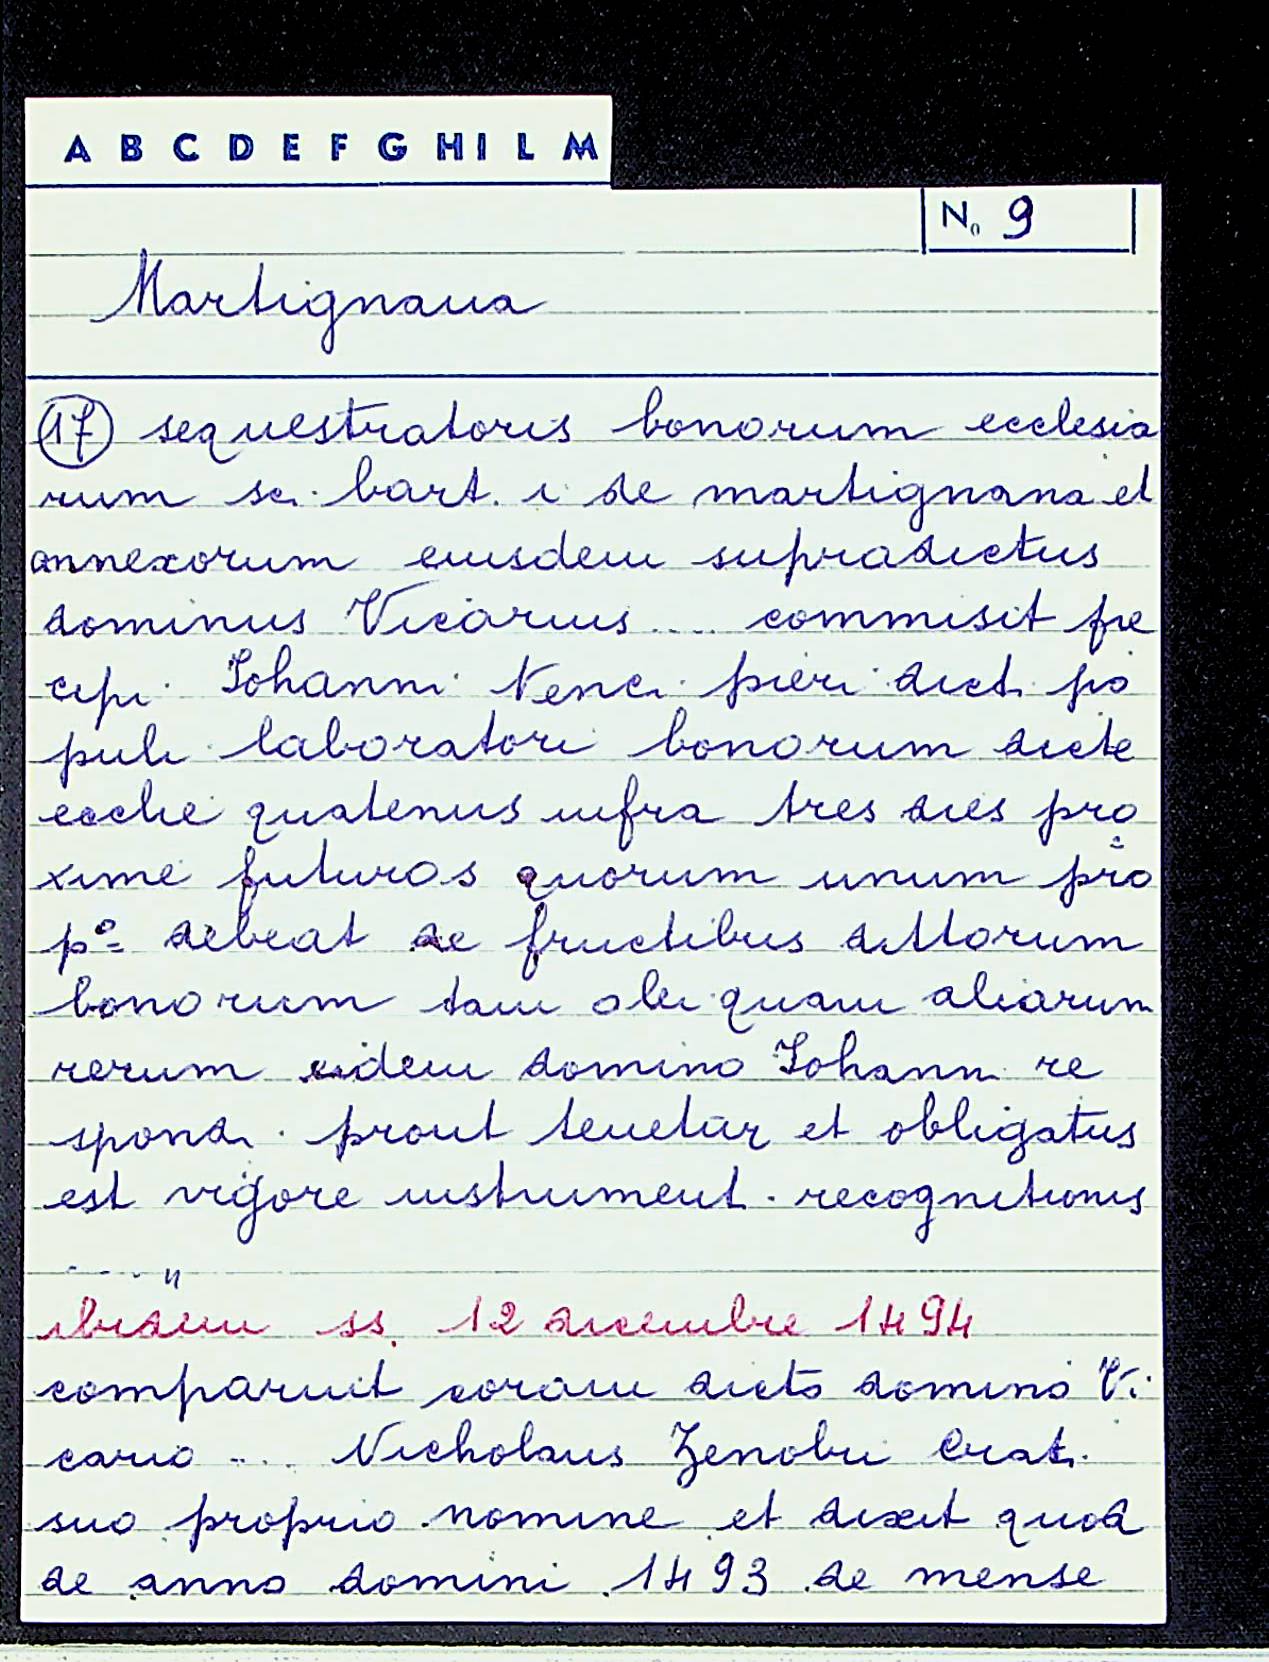 A B C D E F G H I L M
No 9
Martignana
17 sequestratoris bonorum ecclesia
rum sci. bart. i de martignana et
annexorum eiusdem supradictus
dominus Vicarius .... commisit pre
cipi Iohanni Nenci pieri dict. po
puli laboratori bonorum dicte
ecclie quatenus infra tres dies pro
xime futuros quorum unum pro
pº= debeat de fructibus dittorum
bonorum tam olei quam aliarum
rerum eidem domino Iohanni re
spond. prout tenetur et obligatus
est vigore instrument. recognitionis
....."
ibidem ss. 12 dicembre 1494
comparuit coram dicto domino Vi
cario .... Nicholaus Zenobii
suo proprio nomine et dixit quod
de anno domini 1493 de mense